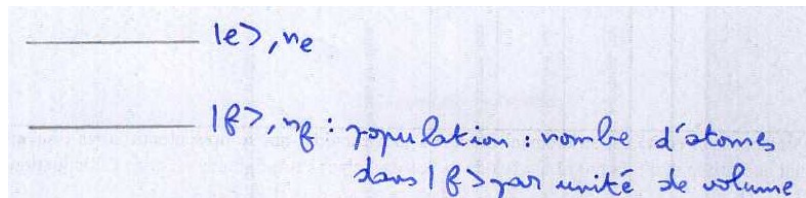 |e>, ne
|f>, nf : population : nombre d'atomes
dans |f> par unité de volume